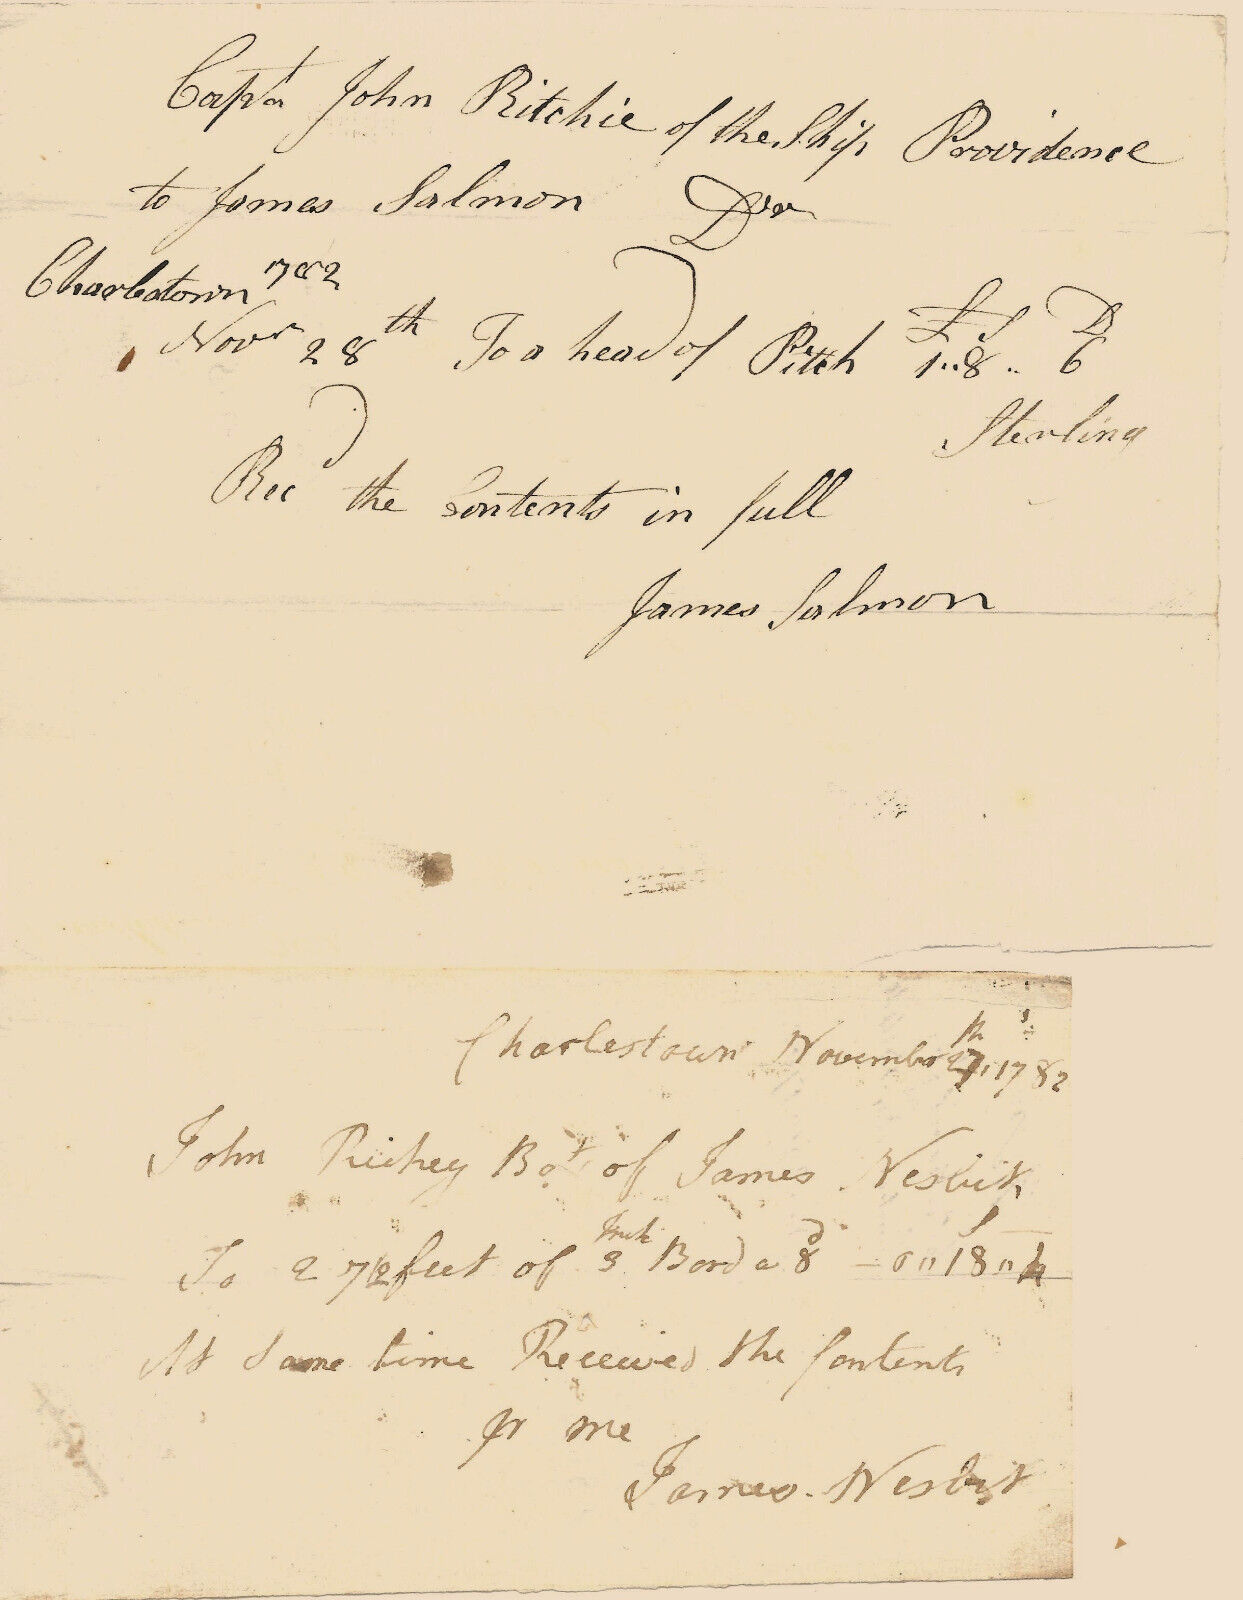 Captn John Ritchie of the Ship Providence
to James Salmon Dr
Charlestown 1782
Novr 28th To a head of Pitch £ S D 1..8..6
Sterling
Recd the Contents in full
James Salmon
Charlestown November 27th 1782
John Richey Bot of James Nesbit
To 27 feet of 3 Inch Bord a 8d - 0"18"4
At Same time Received the Contents
pr me
James Nesbit